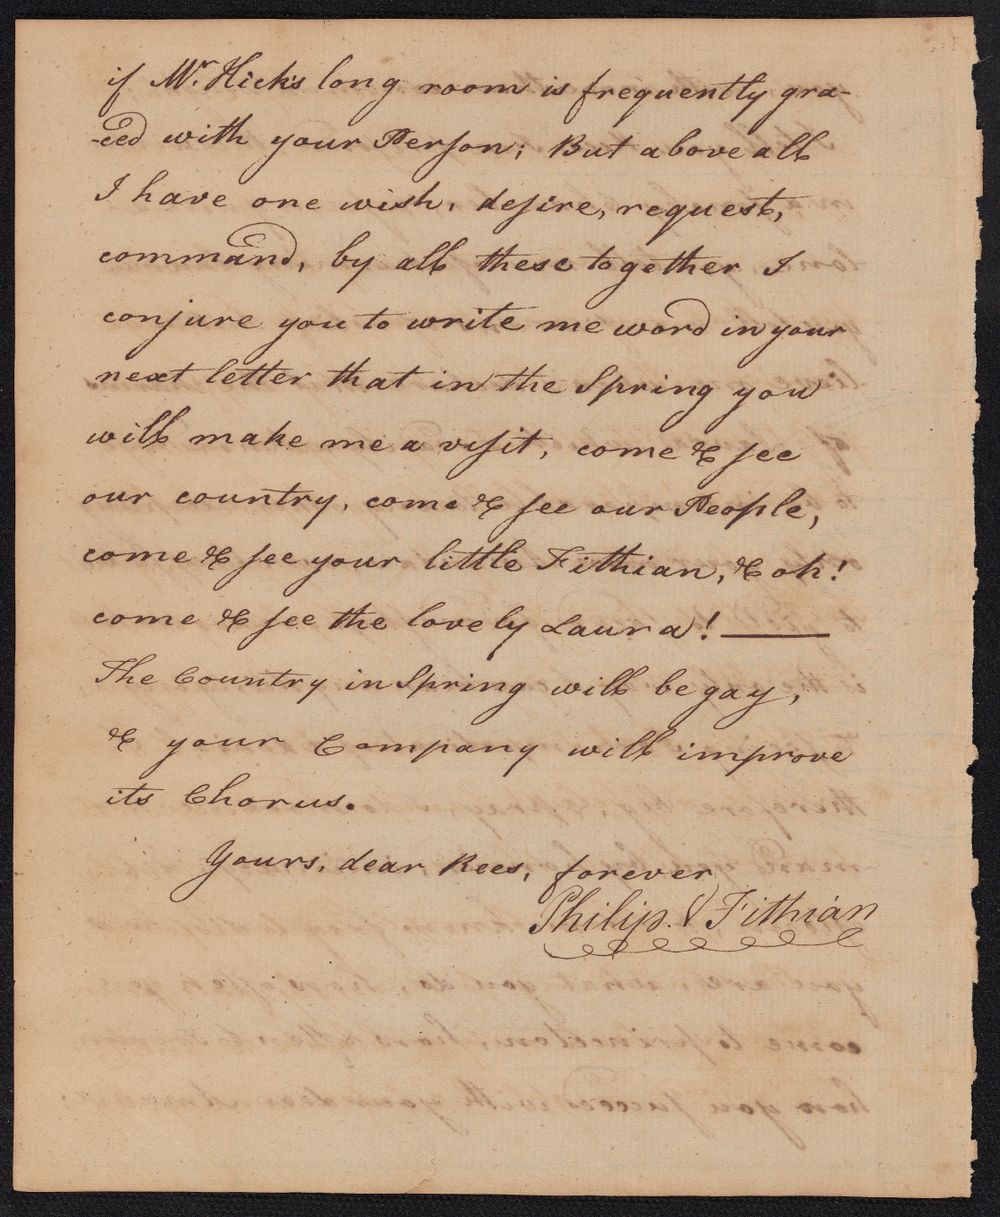 if Mr. Hicks long room is frequently gra-
-ced with your Person; But above all
I have one wish, desire, request,
command, by all these together I
conjure you to write me word in your
next letter that in the Spring you
will make me a visit, come & see
our country, come & see our People,
come & see your little Fithian, & oh!
come & see the lovely Laura! ———
The Country in Spring will be gay,
& your Company will improve
its Chorus.
Yours, dear Rees, forever
Philip. V Fithian